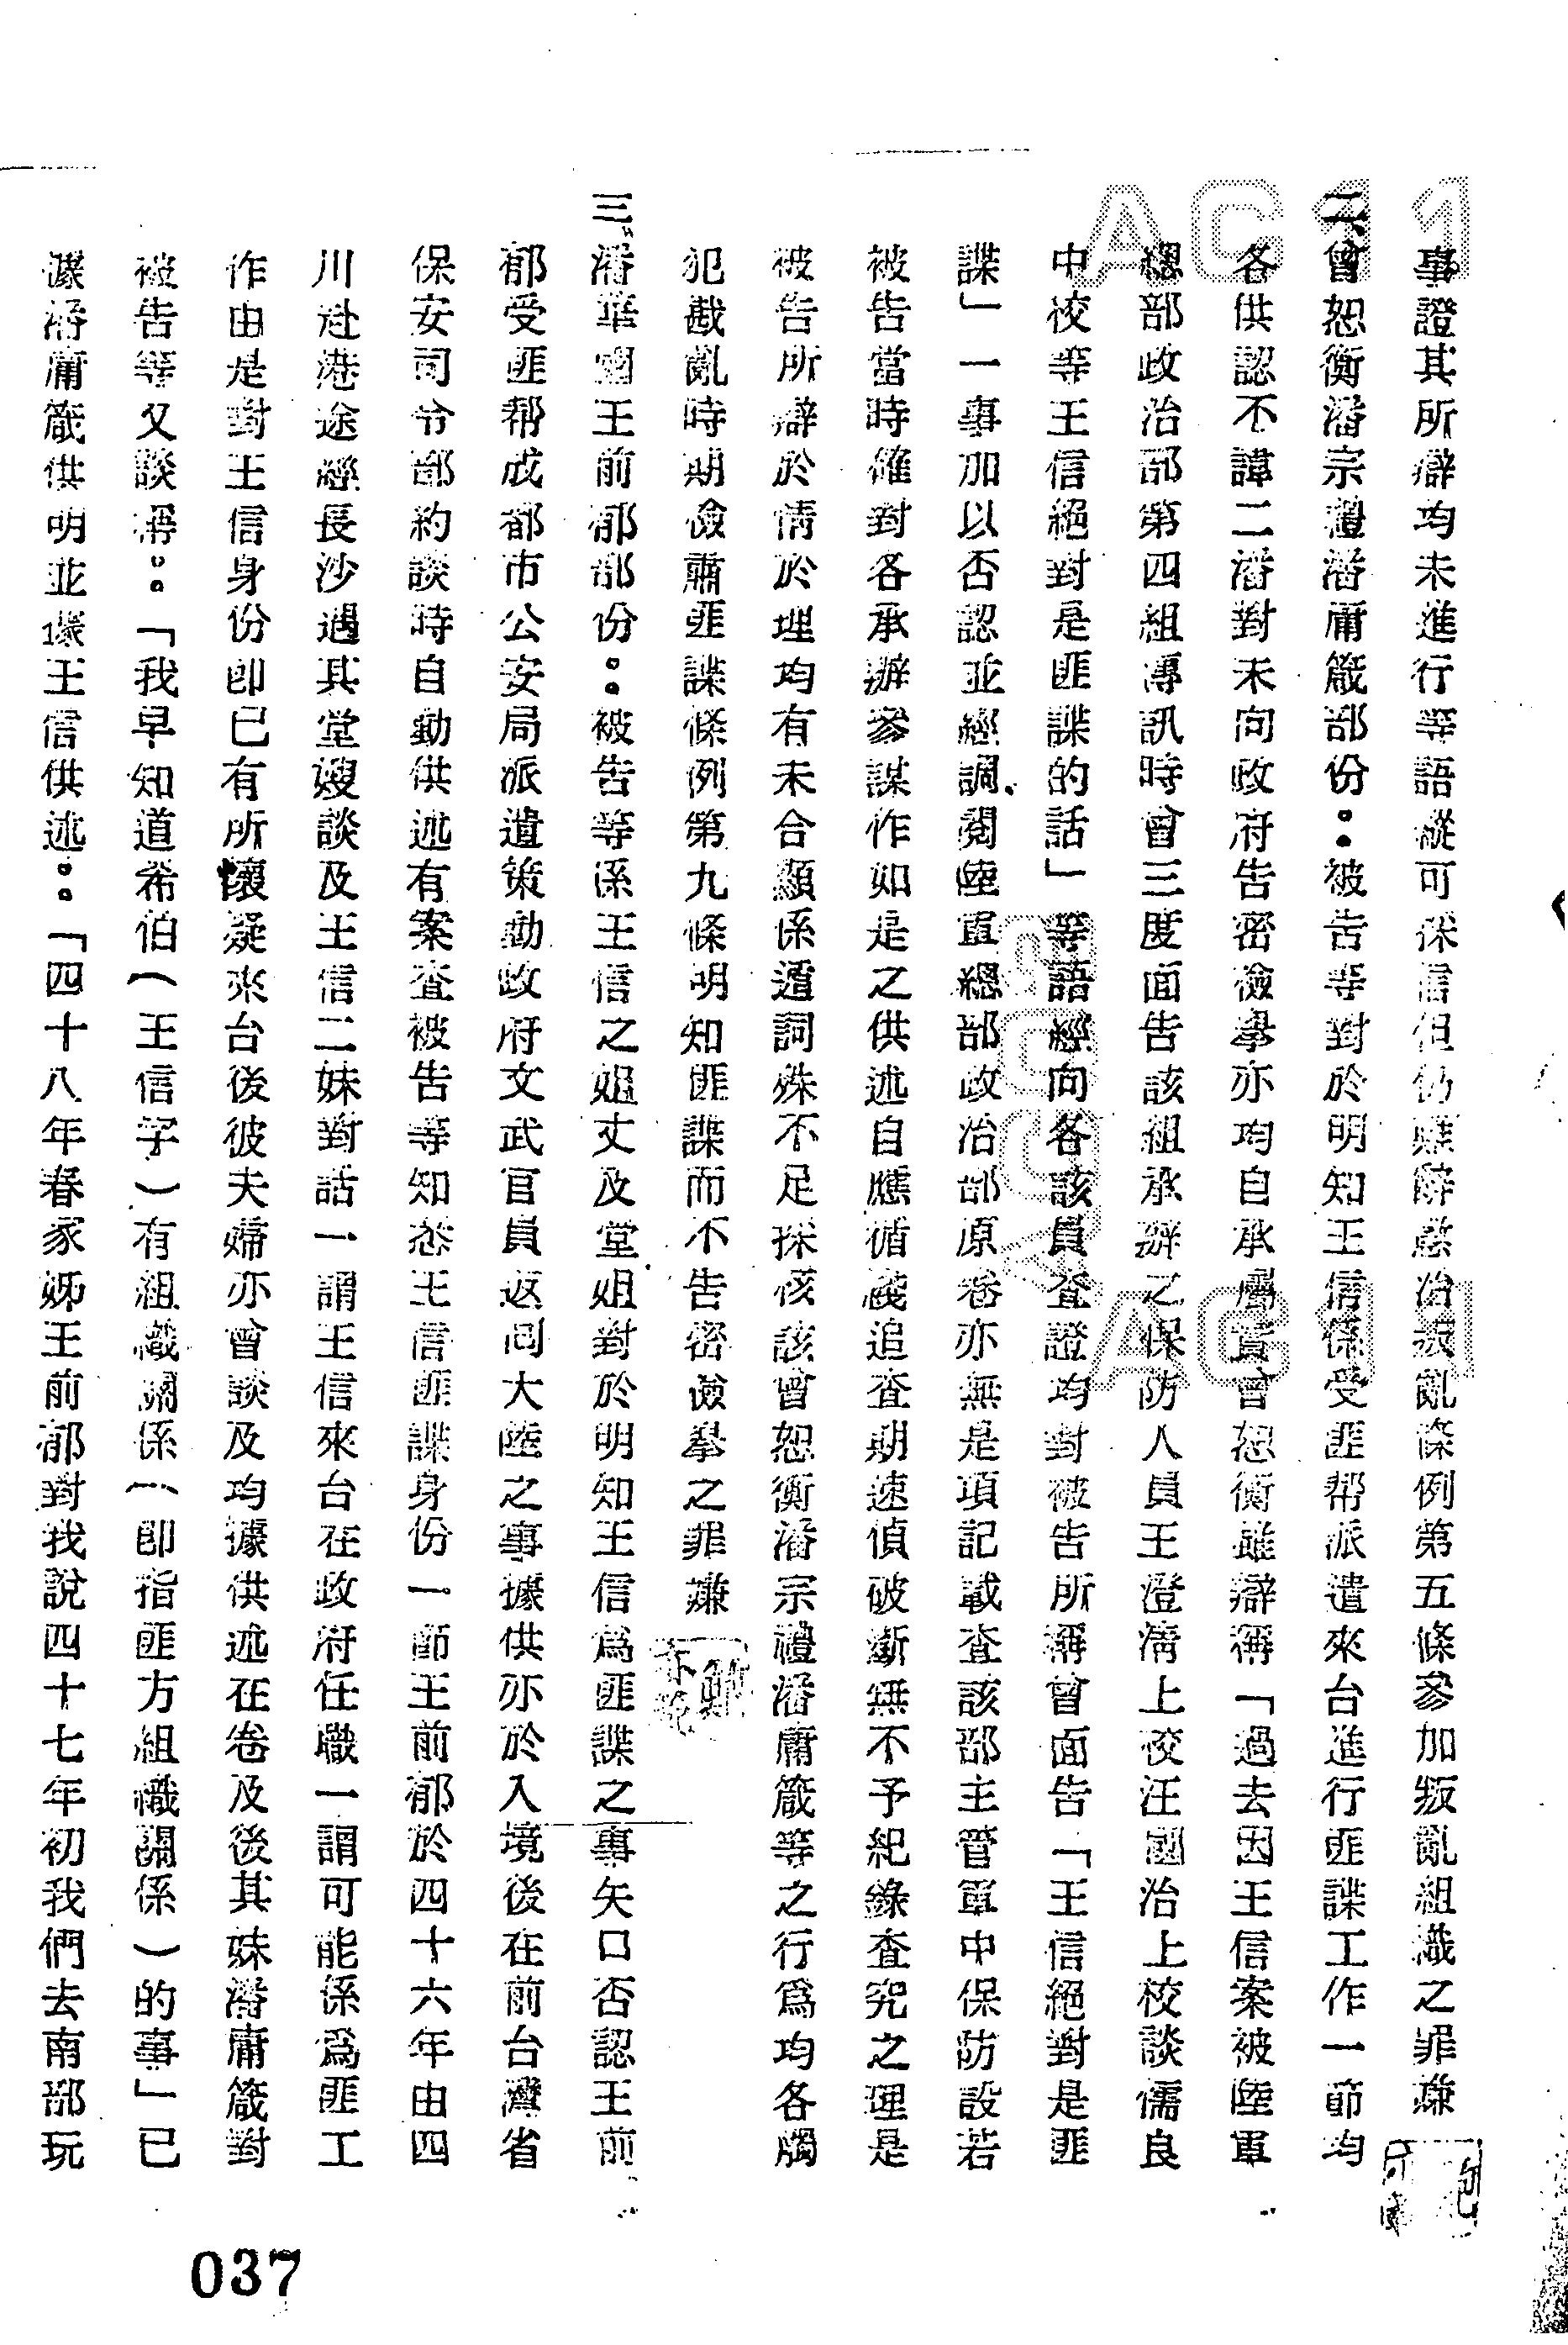 事證其所辯均未進行等語縱可採信但仍難辭懲治叛亂條例第五條參加叛亂組織之罪嫌
二、曾恕衡潘宗禮潘庸箴部份：被告等對於明知王信係受匪幫派遣來台進行匪諜工作一節均
各供認不諱二潘對未向政府告密檢舉亦均自承屬實曾恕衡雖辯稱「過去因王信案被陸軍
總部政治部第四組傳訊時曾三度面告該組承辦之保防人員王澄清上校汪國治上校談儒良
中校等王信絕對是匪諜的話」等語經向各該員查證均對被告所稱曾面告「王信絕對是匪
諜」一事加以否認並經調閱陸軍總部政治部原卷亦無是項記載查該部主管軍中保防設若
被告當時確對各承辦參謀作如是之供述自應循綫追查期速偵破斷無不予紀錄查究之理是
被告所辯於情於理均有未合顯係遁詞殊不足採核該曾恕衡潘宗禮潘庸箴等之行為均各觸
犯戡亂時期檢肅匪諜條例第九條明知匪諜而不告密檢舉之罪嫌
三、潘華國王前郁部份：被告等係王信之姐丈及堂姐對於明知王信為匪諜之事矢口否認王前
郁受匪幫成都市公安局派遣策動政府文武官員返回大陸之事據供亦於入境後在前台灣省
保安司令部約談時自動供述有案查被告等知悉王信匪諜身份一節王前郁於四十六年由四
川赴港途經長沙遇其堂嫂談及王信二妹對話一謂王信來台在政府任職一謂可能係為匪工
作由是對王信身份即已有所懷疑來台後彼夫婦亦曾談及均據供述在卷及後其妹潘庸箴對
被告等又談稱：「我早知道希伯（王信字）有組織關係（即指匪方組織關係）的事」已
據潘庸箴供明並據王信供述：「四十八年春家姊王前郁對我說四十七年初我們去南部玩
037
AC11
AC11